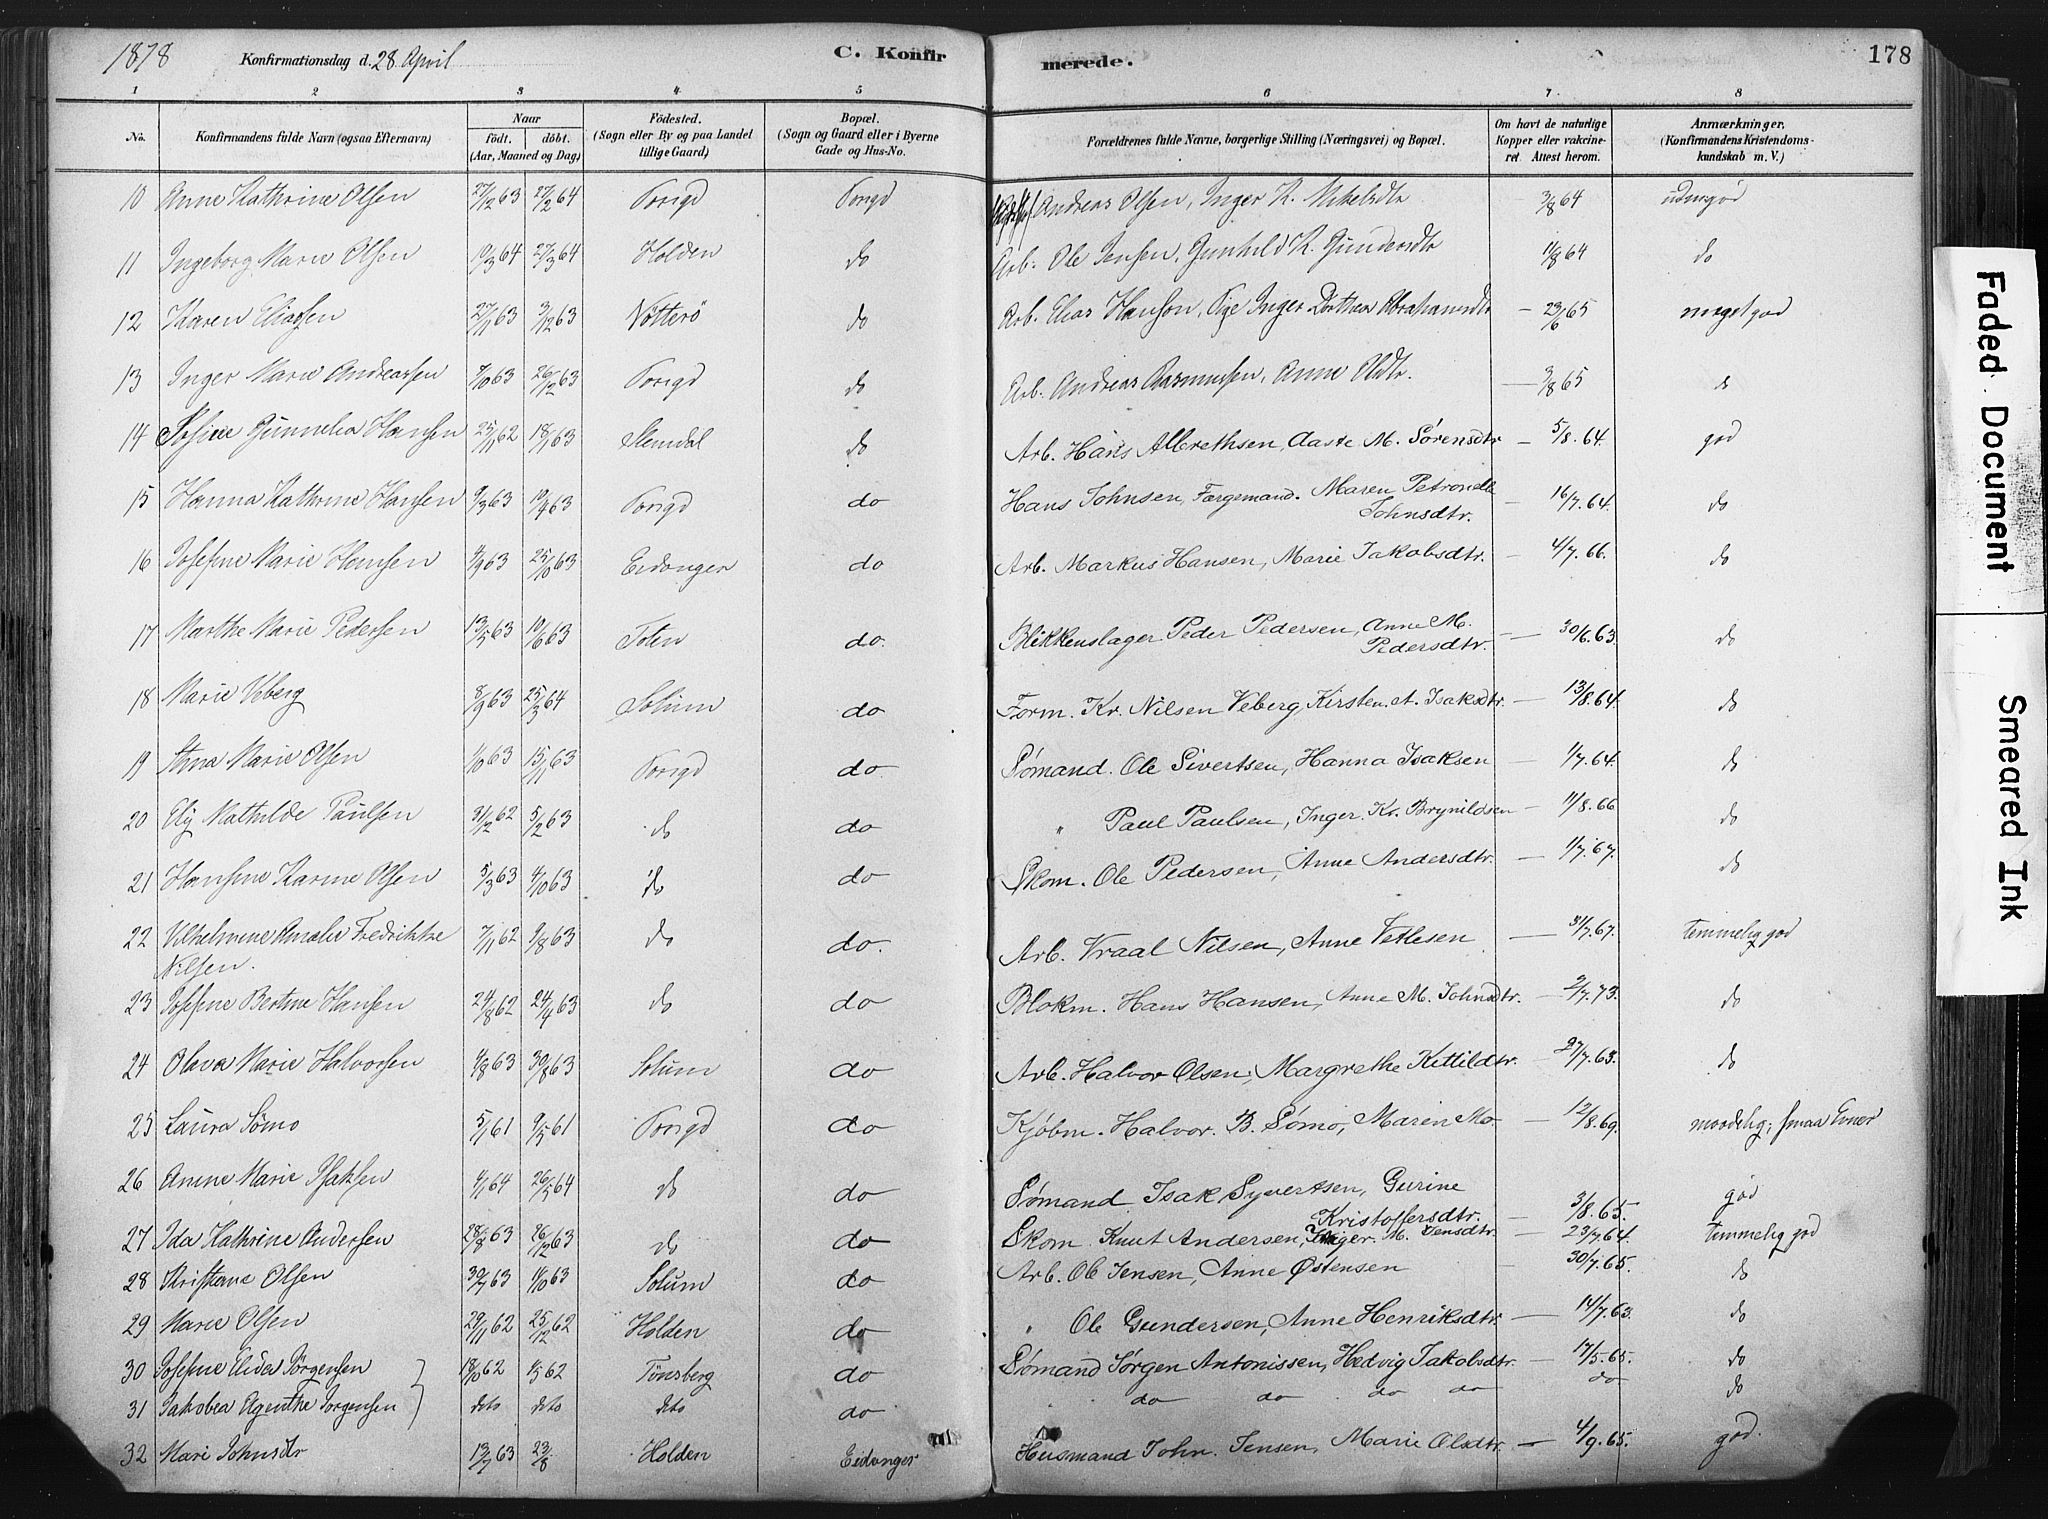 1878 Konfirmationsdag d. 28 April C. Konfirmerede. 178
1 2 3 4 5 6 7. 8
No. Konfirmandens fulde Navn (ogsaa Efternavn) Naar født. døbt. (Aar, Maaned og Dag) Fødested. (Sogn eller By og paa Landet tillige Gaard) Bopæl. (Sogn og Gaard eller i Byerne Gade og Hus-No. Forældrenes fulde Navne, borgerlige Stilling (Næringsvei) og Bopæl. Om havt de naturlige Kopper eller vakcineret. Attest herom. Anmærkninger. (Konfirmandens Kristendomskundskab m. V.)
10 Anne Kathrine Olsen 27/12 63 27/2 64 Porsgd Porsgd Andreas Olsen, Inger K. Nikelsdtr 3/8 64 udm god
11 Ingeborg Marie Olsen 10/3 64 27/3 64 Holden do Arb. Ole Jensen, Gunhild K. Gundersdtr 11/8 64 do
12 Karen Eliassen 27/11 63 3/12 63 Nøtterø do Arb. Elias Hanson, Inger Dorthea Abrahamsdtr — 23/6 65 meget god
13 Inger Marie Andreassen 7/10 63 26/12 63 Porsgd do Arb. Andreas Rasmussen, Anne Olsdtr. — 3/8 65 do
14 Josine Gunnelia Hansen 25/11 62 18/1 63 Slemdal do Arb. Hans Albrethsen, Aaste M. Sørensdtr — 5/8. 64. god
15 Hanna Kathrine Hansen 9/3 63 19/4 63 Porsgd do Hans Johnsen, Færgemand. Maren Petronelle Johnsdtr. — 16/7. 64. do
16 Josefine Marie Hansen 4/9 63 25/10 63 Eidanger do Arb. Markus Hansen, Marie Jakobsdtr. — 4/7. 66. do
17 Marthe Marie Pedersen 13/5 63 10/6 63 Toten do. Blikkenslager Peder Pedersen, Anne M. Pedersdtr. — 30/6. 63. do
18 Marie Veberg 8/9 63 25/3 64 Solum do Form. Kr. Nilsen Veberg, Kirsten A. Isaksdtr. — 13/8. 64. do
19 Stina Marie Olsen 1/10 63 15/11 63 Porsgd do Sømand. Ole Sivertsen, Hanna Isaksen — 1/7. 64. do
20 Ely Mathilde Paulsen 31/12 62 5/2 63 do do " Paul Paulsen, Inger. Kr. Brynildsen — 11/8. 66 do
21 Hansine Karine Olsen 5/3 63 4/10 63 do do Skom. Ole Pedersen, Anne Andersdtr. — 1/7. 67. do
22 Vilhelmine Amalie Fredrikke 7/11 62 9/8 63 do do. Arb. Vraal Nilsen, Anne Vetlesen — 31/7. 67. temmelig god
Nilsen.
23 Josefine Bertine Hansen 24/8 62 24/4 63 do do Blokm. Hans Hansen, Anne M. Johnsdtr. — 2/7. 73. do
24 Olava Marie Halvorsen 4/8 63 30/8 63 Solum do Arb. Halvor Olsen, Margrethe Kittildtr. — 27/7. 63. do
25 Laura Sømo 5/1 61 9/5 61 Porsgd do Kjøbm. Halvor. B. Sømo, Maren Mo — 12/8. 69. maadelig; smaa Evner
26 Anine Marie Isaksen 4/1 64 26/5 64 do do Sømand Isak Syvertsen, Gurine Kristoffersdtr. — 3/8. 65. god
27 Ida Kathrine Andersen 28/8 63 26/12 63 do do Skom. Knut Andersen, Inger. M. Jensdtr. — 23/7. 64. temmelig god
28 Kristiane Olsen 30/7 63 11/10 63 Solum do Arb. Ole Jensen, Anne Østensen — 30/7. 65. do
29 Marie Olsen 29/11 62 25/12 62 Holden do " Ole Gundersen, Anne Henriksdtr. — 14/7. 63. do
30 Josefine Elida Jørgensen 18/10 62 62 Tønsberg do Sømand Jørgen Antonissen, Hedvig Jakobsdtr. — 17/5. 65. do
31 Jakobea Agenthe Jørgensen dets dets dets do " do do do do do do
32 Mari Johnsdtr 13/7 63 23/8 Holden Eidanger Husmand John. Jensen, Marie Olsdtr. — 4/9. 65. god.
Faded Document
Smeared Ink